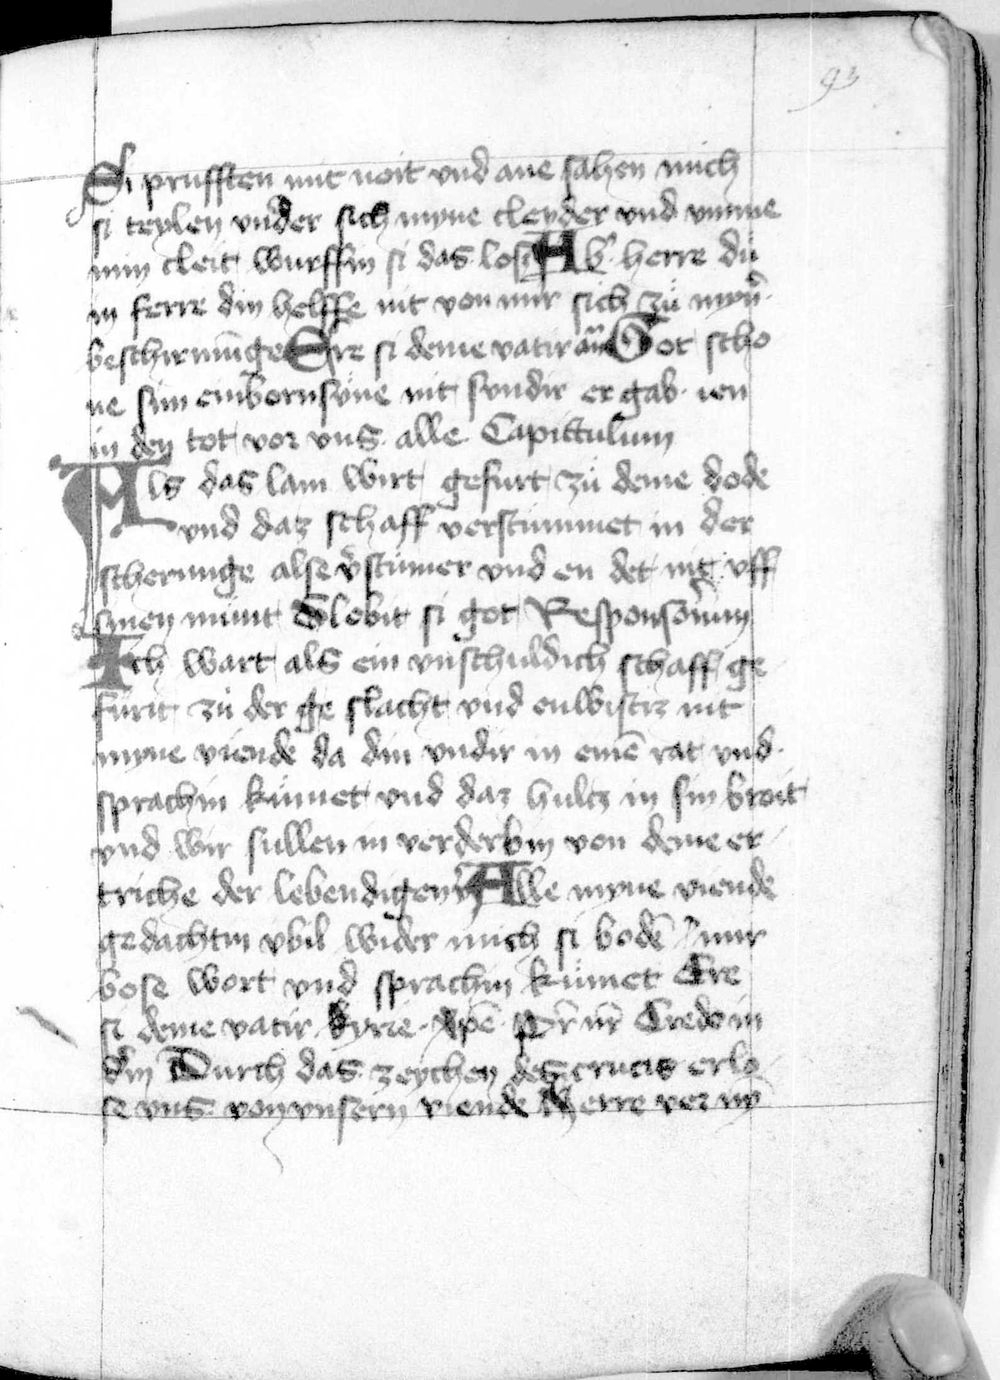 93
Si prufften mit noit vnd ane sahen mich
si teylen vnder sich myne cleyder vnd vmme
min cleit wurffin si das los Ab' herre du
in ferre din helffe nit von mir sich zu myn'
beschirmūnge Ere si deme vatir an Got scho
ne sim einbornsune nit sundir er gab ien
in den tot vor vns alle Capittulum
Als das lam wirt gefurt zu deme dode
vnd daz schaff verstummet in der
scherunge alse v'stumer vnd en det nit vff
sinen munt Globit si got Responsorium
Ich wart als ein vnschuldich schaff ge
furit zu der ge slacht vnd enwistiz nit
myne viende da din vndir in einē rat vnd
sprachin kumet vnd daz hultz in sin broit
vnd wir sullen in verderbin von deme er
triche der lebendigen v' Alle myne viende
gedachtin vbil wider mich si bodē mir
bose wort vnd sprachin kumet Ere
si deme vatir kyrie xpē Pr̄ nr̄ Credo in
dm̄ Durch das zeychen des crucis erlo
se vns von vnsern viende Herre ver ny